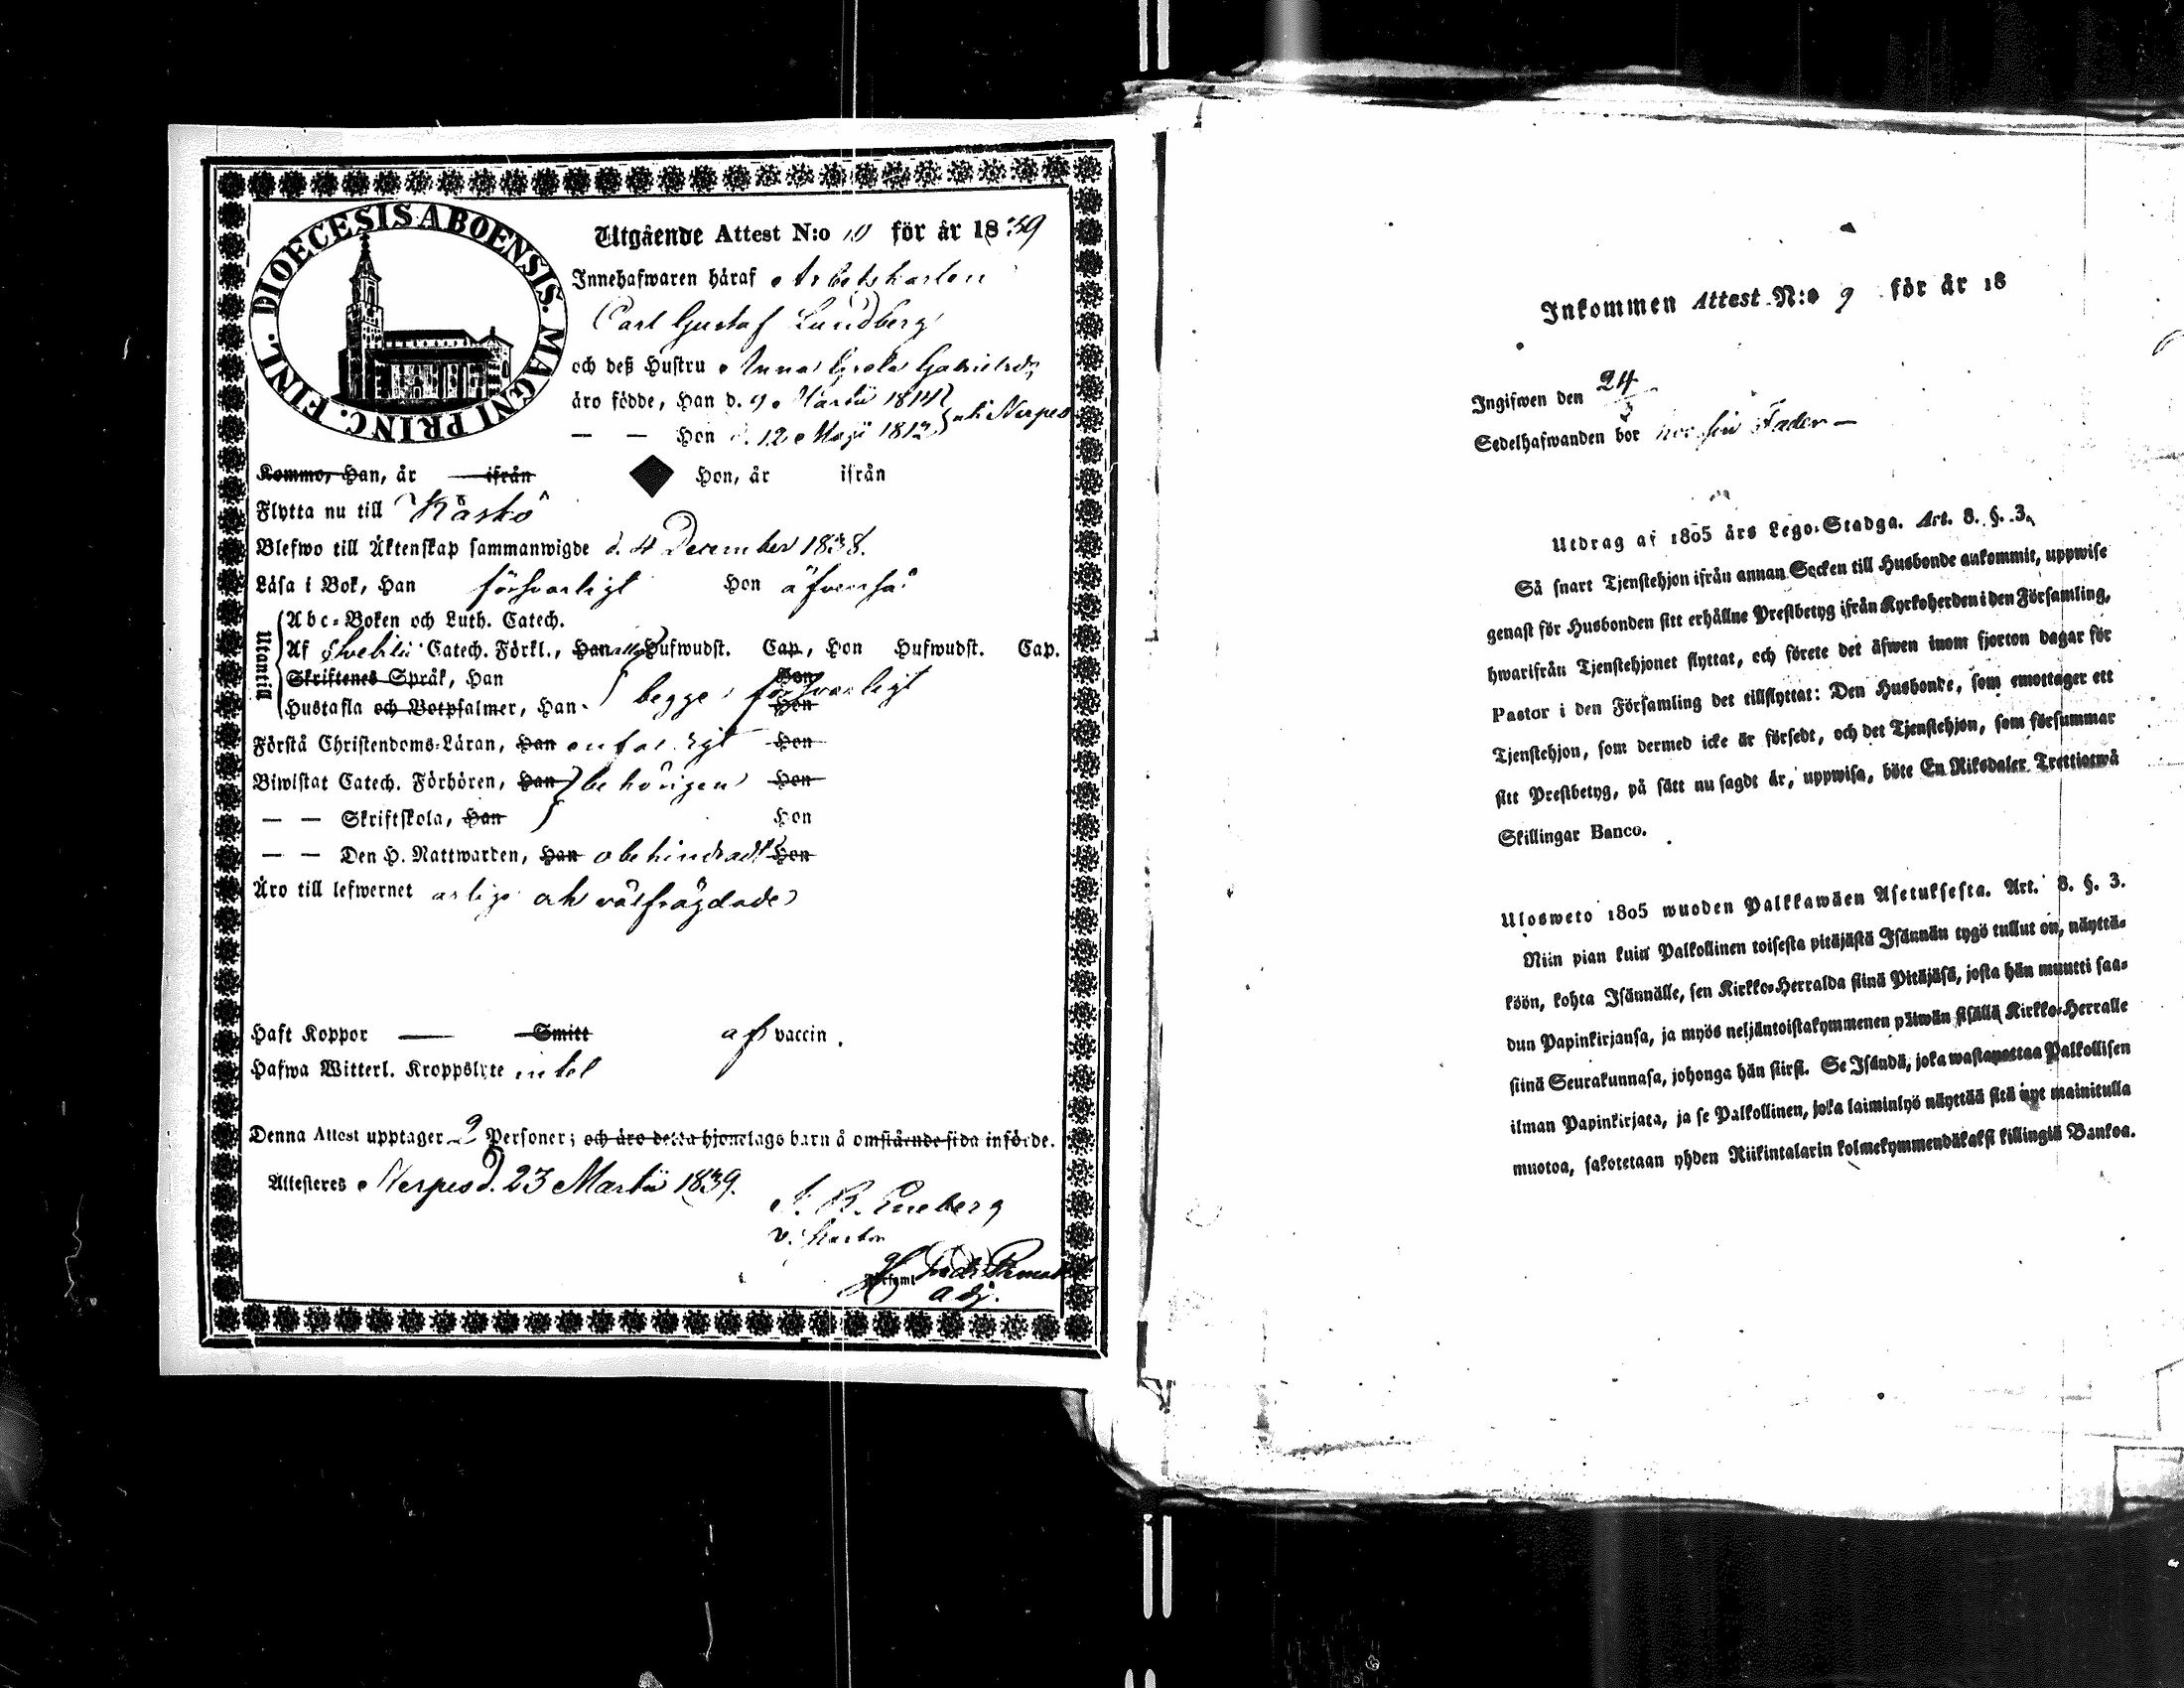 DIOECESIS ABOENSIS. MAGNI PRINC. FINL.
Utgående Attest N:o 10 för år 1839
Innehafwaren häraf Arbetskarlen
Carl Gustaf Lundberg
och deß Hustru Anna Greta Gabrielsdr
äro födde, Han d. 9 Martii 18
— — Hon d. 12 Maji 1812 uti Nerpes
Kommo, Han, år ifrån Hon, år ifrån
Flytta nu till Kaskö
Blefwo till Äktenskap sammanwigde d. 4 December 1838.
Läsa i Bok, Han försvarligt Hon äfvenså
Utantil
Abc-Boken och Luth. Catech.
Af Svebilii Catech. Förkl., Han Hufwudst. Cap, Hon Hufwudst. Cap.
Skriftenes Språk, Han Hon
Hustafla och Botpsalmer, Han begge försvarligt Hon
Förstå Christendoms-Läran, Han enfaldigt Hon
Biwistat Catech. Förhören, Han behörigen Hon
— — Skriftskola, Han Hon
— — Den H. Nattwarden, Han obehindradt Hon
Äro till lefwernet ärlige och välfrägdade
Haft Koppor — Smitt af vaccin.
Hafwa Witterl. Kroppslyte intet
Denna Attest upptager 2 Personer; och äro detta hjonelags barn å omstående sida införde.
Attesteres Nerpes d. 23 Martii 1839.
J. R. Eneberg
v. Pastor
Församl.
adj.
Inkommen Attest N:o 9 för år 18
Ingifwen den 24/3
Sedelhafwanden bor hos sin Fader —
Utdrag af 1805 års Lego-Stadga. Art. 8. §. 3.
Så snart Tjenstehjon ifrån annan Socken till Husbonde ankommit, uppwise
genast för Husbonden sitt erhållne Prestbetyg ifrån Kyrkoherden i den Församling,
hwarifrån Tjenstehjonet flyttat, och förete det äfwen inom fjorton dagar för
Pastor i den Församling det tillflyttat: Den Husbonde, som emottager ett
Tjenstehjon, som dermed icke är försedt, och det Tjenstehjon, som försummar
sitt Prestbetyg, på sätt nu sagdt är, uppwisa, böte En Riksdaler Trettiotwå
Skillingar Banco.
Ulosweto 1805 wuoden Palkkawäen Asetuksesta. Art. 8. §. 3.
Niin pian kuin Palkollinen toisesta pitäjästä Isännän tygö tullut on, näyttä-
köön, kohta Isännälle, sen Kirkko-Herralda siinä Pitäjäsä, josta hän muutti saa-
dun Papinkirjansa, ja myös neljäntoistakymmenen päiwän sisällä Kirkko-Herralle
siinä Seurakunnasa, johonga hän siirsi. Se Isändä, joka wastaanottaa Palkollisen
ilman Papinkirjata, ja se Palkollinen, joka laiminlyö näyttää sitä nyt mainitulla
muotoa, sakotetaan yhden Riikintalarin kolmekymmendäkaksi killingiä Bankoa.